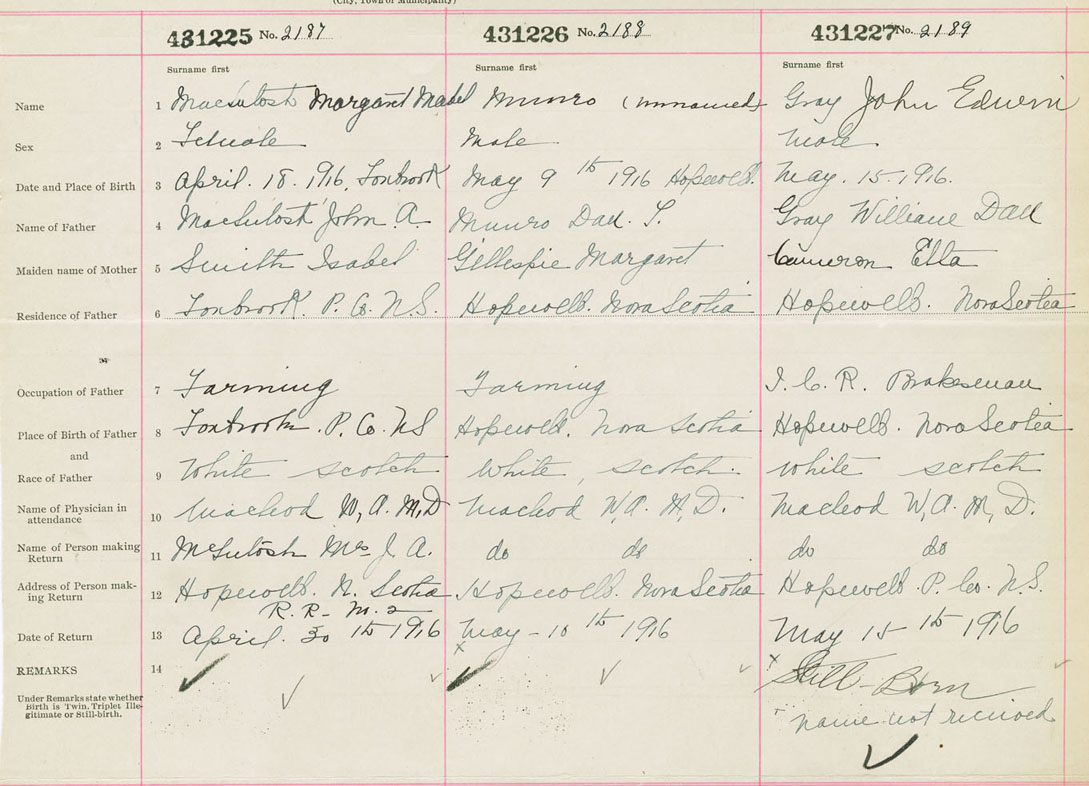 (City, Town or Municipality)
431225 No. 2187 431226 No. 2188 431227 No. 2189
Surname first Surname first Surname first
Name 1 MacIntosh Margaret Mabel Munro (unnamed) Gray John Edwin
Sex 2 Female Male Male
Date and Place of Birth 3 April. 18. 1916, Foxbrook May 9th 1916 Hopewell. May. 15 1916.
Name of Father 4 MacIntosh John A. Munro Dan. Gray William Dan
Maiden name of Mother 5 Smith Isabel Gillespie Margaret Cameron Ella
Residence of Father 6 Foxbrook. P. Co. N.S. Hopewell. Nova Scotia Hopewell. Nova Scotia
Occupation of Father 7 Farming Farming I. C. R. Brakesman
Place of Birth of Father 8 Foxbrook. P. Co. NS Hopewell. Nova Scotia Hopewell. Nova Scotia
and
Race of Father 9 White scotch White, scotch. White scotch
Name of Physician in
attendance 10 Macleod W, A. M, D Macleod W, A. M, D. Macleod W, A. M, D.
Name of Person making
Return 11 McIntosh Mrs J A. do do do do
Address of Person mak-
ing Return 12 Hopewell. N. Scotia Hopewell. Nova Scotia Hopewell. P. Co. N.S.
R. R- 2
Date of Return 13 April. 30th 1916 May - 10th 1916 May 15th 1916
REMARKS 14 x x Still-Born
Under Remarks state whether
Birth is Twin, Triplet Ille-
gitimate or Still-birth.
name not received